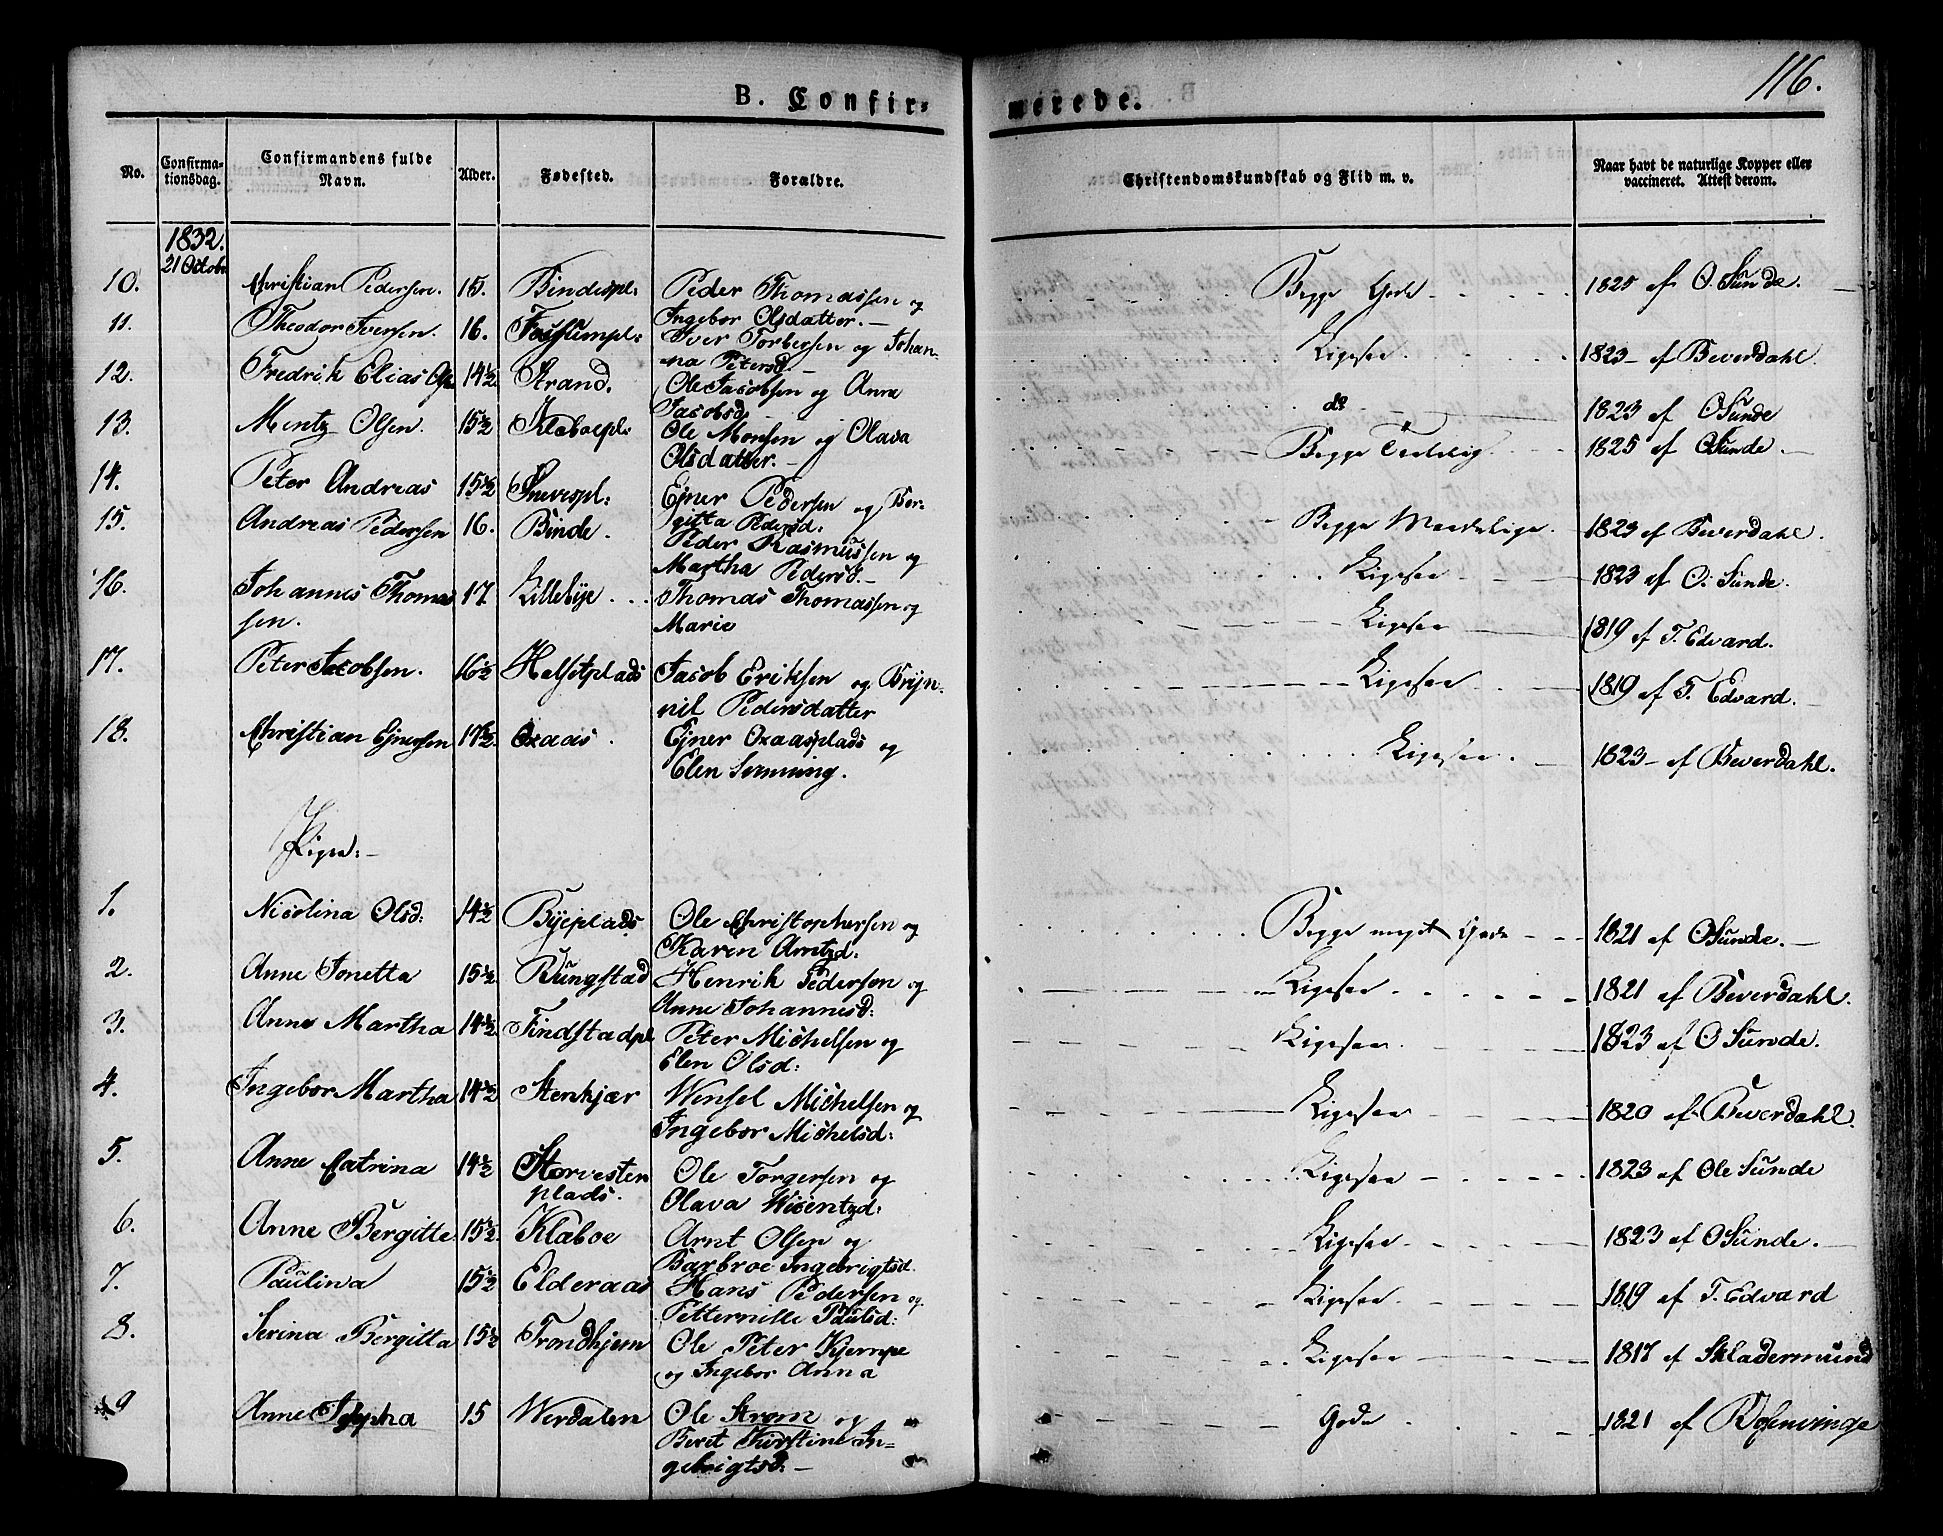 116.
B. Confir-
merede.
No.
Confirma-
tionsdag.
Confirmandens fulde
Navn.
Alder.
Fødested.
Forældre.
Christendomskundskab og Flid m. v.
Naar havt de naturlige Kopper eller
vaccineret. Attest derom.
1832.
21 Octobr
10. Christian Pedersen. 15. Bindespl: Peder Thomassen og Begge Gode 1825 af O. Sunde.
Ingebor Olsdatter.
11. Theodor Iversen. 16. Fossumpl: Iver Torbersen og Johan- Ligesaa. 1823 af Beverdahl.
na Petersd.
12. Fredrik Elias Ols 14½ Strand. Ole Jacobsen og Anna do 1823 af O Sunde
Jacobsd.
13. Mentz Olsen. 15½ Kleboepl: Ole Monsen og Olava Begge Taalelig. 1825 af O Sunde.
Olsdatter.
14. Peter Andreas 15½ Ejner Pedersen og Ber- Begge Maadelige. 1823 af Beverdahl.
gitta Pedersd:
15. Andreas Pedersen 16. Binde. Peder Rasmussen og Ligesaa 1823 af O. Sunde.
Martha Pedersd.
16. Johannes Thomas 17 Lillebye. Thomas Thomassen og Ligesaa 1819 af T. Edvard.
sen. Marie
17. Peter Jacobsen. 16½ Halsetplads Jacob Eriksen og Brÿn- Ligesaa 1819 af T. Edvard.
nil Pedersdatter
18. Christian Ejnersen 17½ Oxaas. Ejner Oxaasplads og Ligesaa. 1823 af Beverdahl.
Elen
Piger:
1. Nicolina Olsd: 14½ Byeplads Ole Christophersen og Begge meget Gode 1821 af O Sunde.
Karen Arntzd:
2. Anne Jonetta 15½ Rungstad Henrik Pedersen og Ligesaa 1821 af Beverdahl.
Anne Johannesd:
3. Anne Martha 14½ Findstadpl Peter Michelsen og Ligesaa. 1823 af O Sunde.
Elen Olsd:
4. Ingebor Martha 14½ Stenkjær Wensel Michelsen og Ligesaa 1820 af Beverdahl.
Ingebor Michelsd:
5. Anne Catrina 14½ Storvesten Ole Torgersen og Ligesaa 1823 af Ole Sunde
plads. Olava Wicentzd:
6. Anne Bergitte 15½ Klæboe Arnt Olsen og Ligesaa 1823 af O Sunde.
Barbroe Ingebrigtsd.
7. Paulina 15½ Elderaas Hans Pedersen og Ligesaa 1819 af T. Edvard
Petternille Paulsd:
8. Serina Bergitta 15½ Trondhjem Ole Peter Kjempe Ligesaa 1817 af Skladermund
og Ingebor Anna
9 Anne Josepha 15 Werdalen Ole Strøm og Gode 1821 af Rosenvinge
Beret Kirstine In-
gebrigtsd: